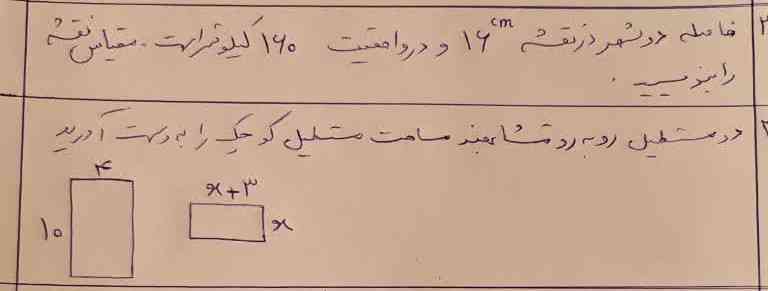 ۳ فاصله دو شهر در نقشه ۱۶ cm و در واقعیت ۱۶۰ کیلومتر است. مقیاس نقشه
را بنویسید.
۲ دو مستطیل روبه رو متشابهند مساحت مستطیل کوچک را به دست آورید
۴
x+۳
۱۰
x